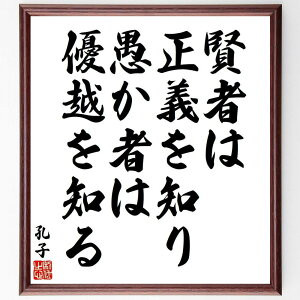 賢者は
正義を知り
愚か者は
優越を知る
孔子